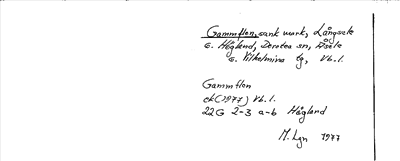 Gammflon, sank mark, Långsele
c. Högland, Dorotea sn, Åsele
c. Vilhelmina tg, Vb.l.
Gammflon
ek (1977) Vb.l.
22G 2-3 a-b Högland
M. Lgn 1977